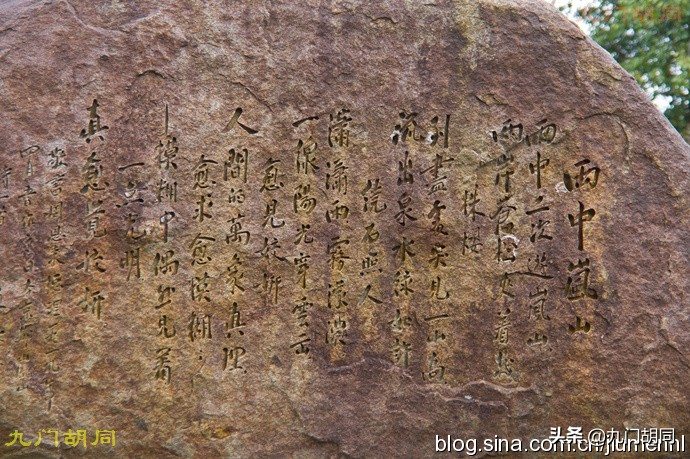 雨中嵐山
雨中二次遊嵐山
兩岸蒼松夾着幾
株櫻
到盡處突見一山高
流出泉水綠如許
繞石照人
瀟瀟雨霧濛濃
一線陽光穿雲出
愈見姣妍
人間的萬象真理
愈求愈模糊
模糊中偶然見着
一點光明
真愈覺姣妍
九门胡同
头条 @九门胡同
blog.sina.com.cn/jiumennl